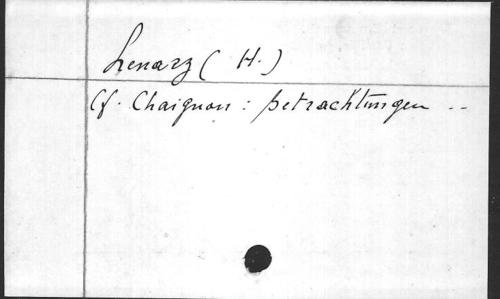 Lenarz ( H. )
Cf. Chaignon : Betrachtungen ..